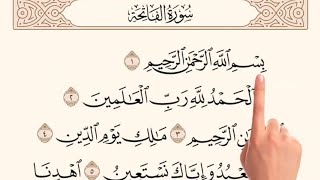 سُورَةُ الفَاتِحَةِ
بِسْمِ اللَّهِ الرَّحْمَٰنِ الرَّحِيمِ ١
الْحَمْدُ لِلَّهِ رَبِّ الْعَالَمِينَ ٢
الرَّحِيمِ ٣ مَالِكِ يَوْمِ الدِّينِ ٤
وَإِيَّاكَ نَسْتَعِينُ ٥ اهْدِنَا